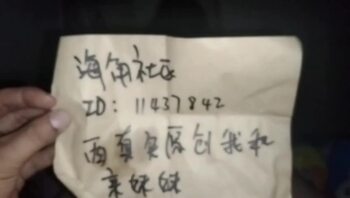 海角社区
ID: 11437842
西真实原创我和
亲妹妹